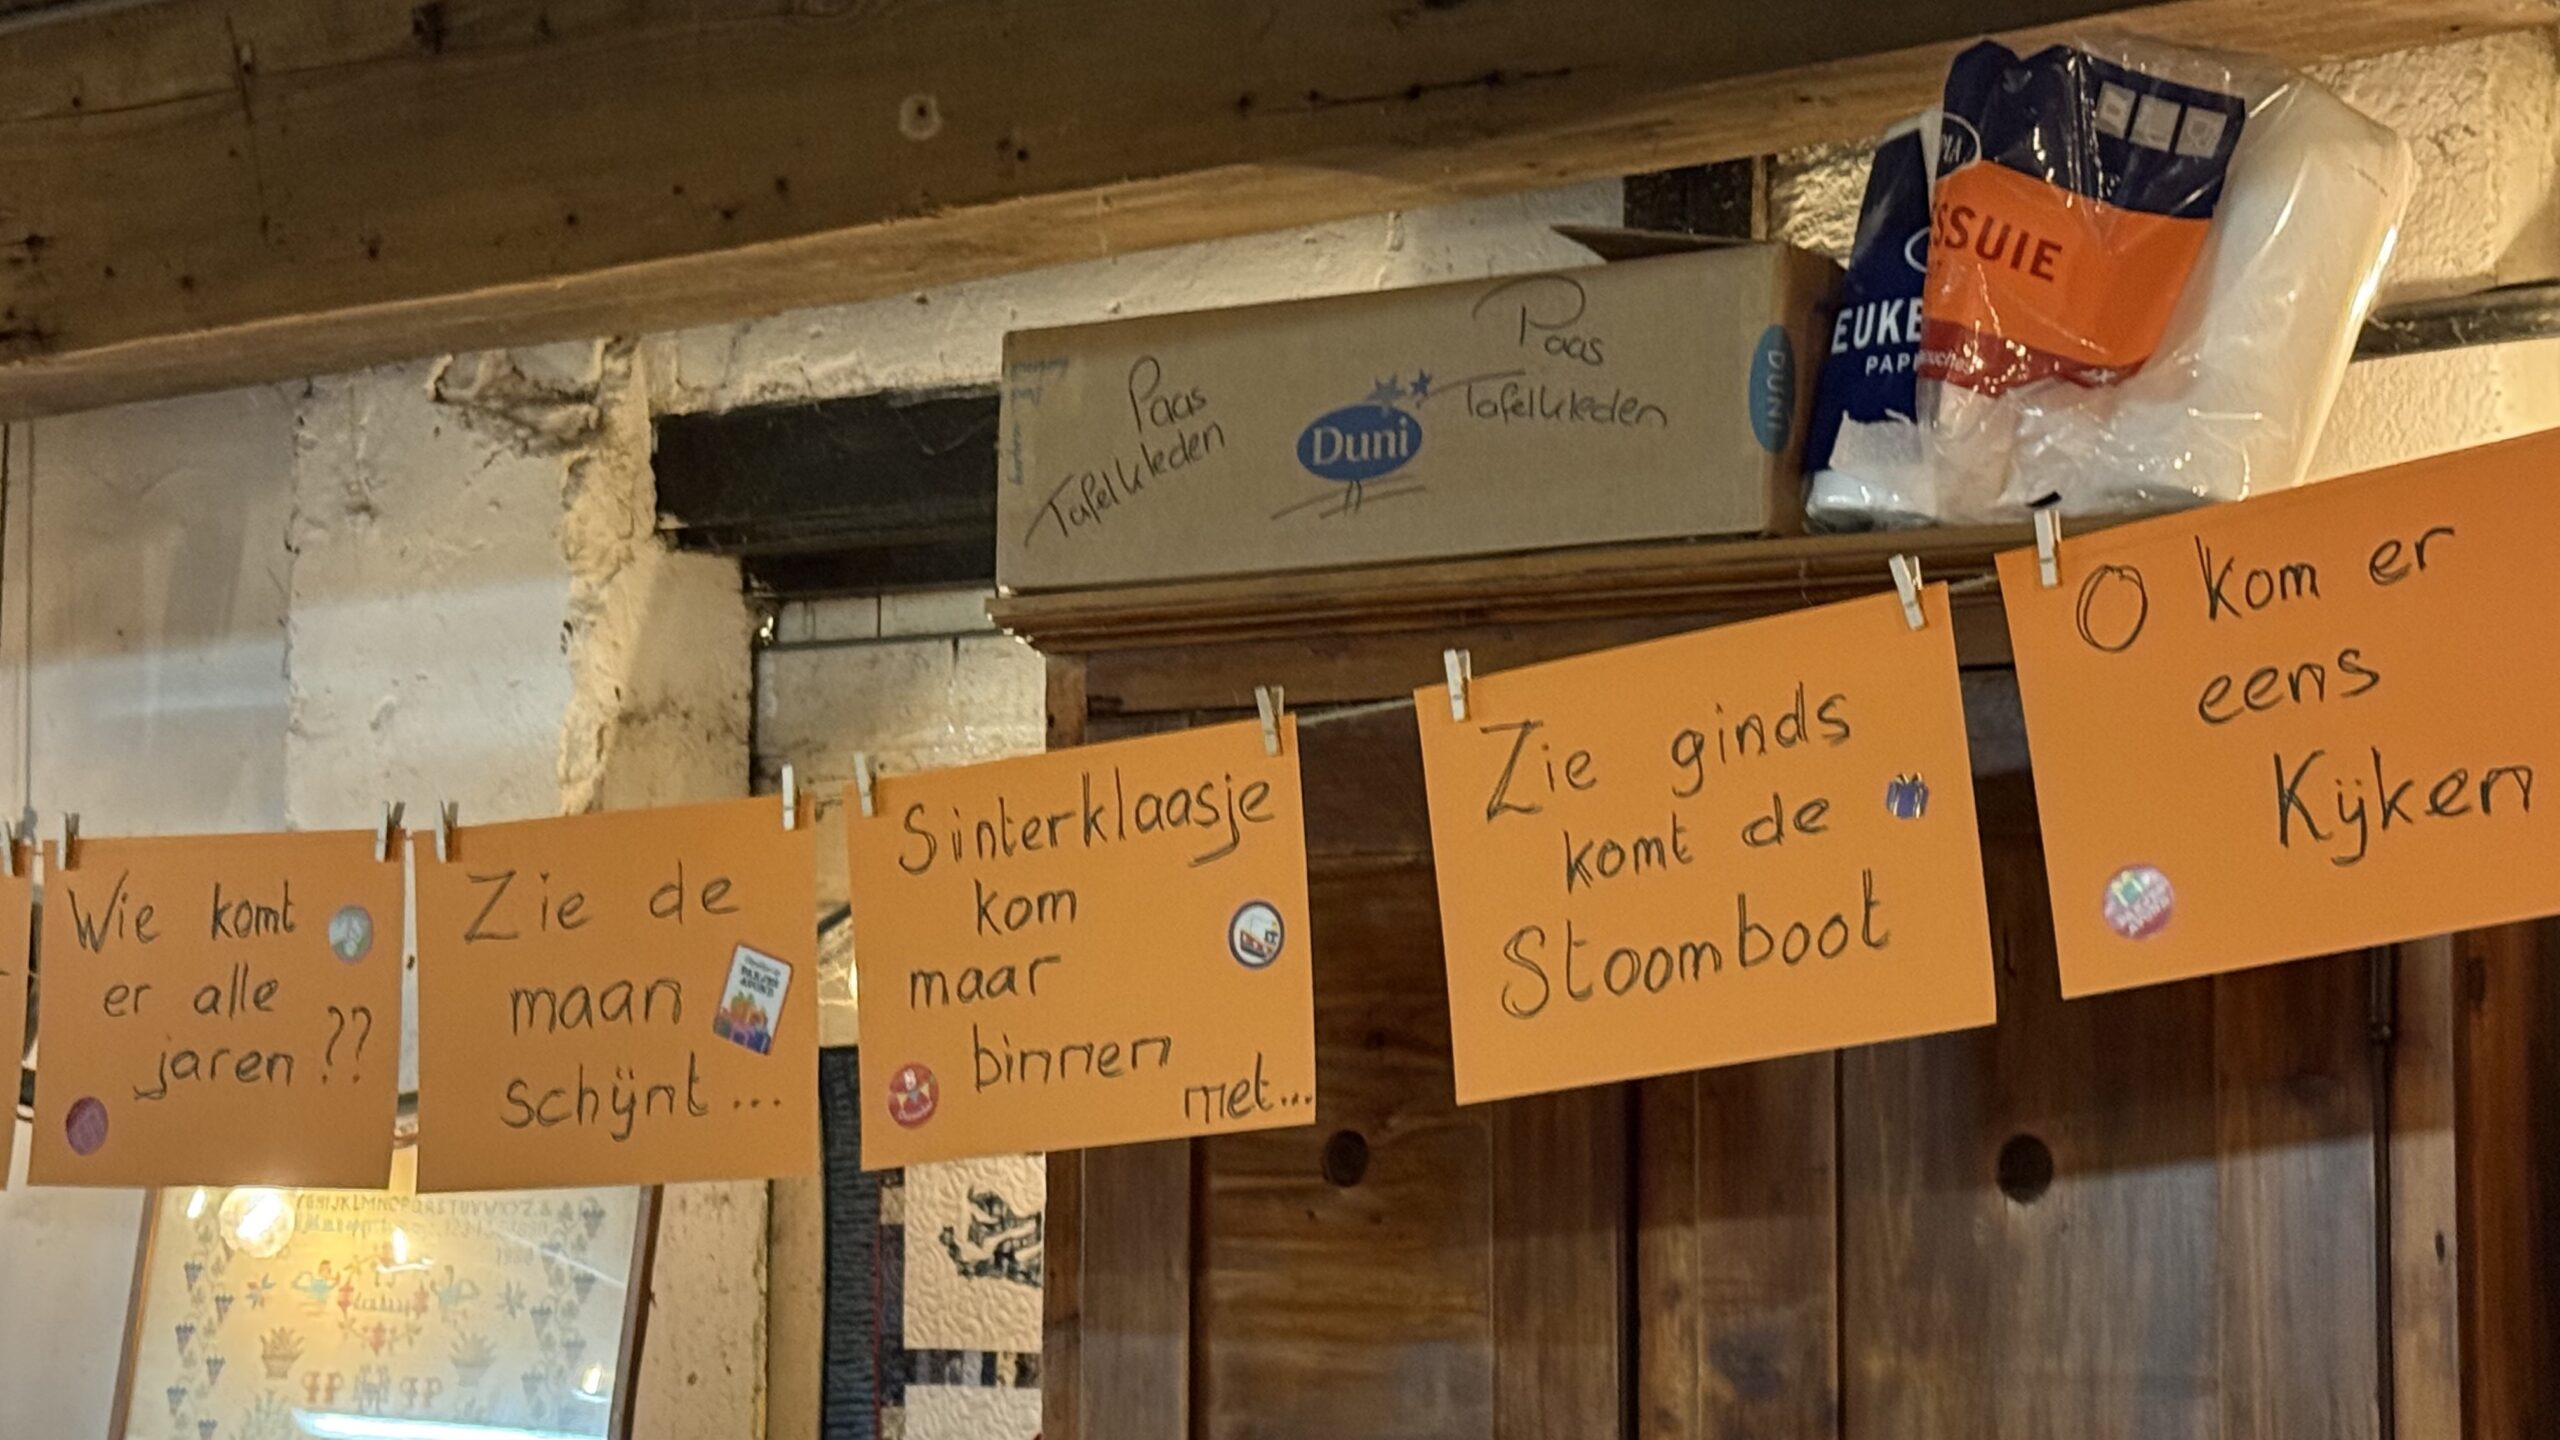 Paas
Tafelkleden
Duni
Paas
Tafelkleden
DUNI
EUKE
PAP
SSUIE
Wie komt
er alle
jaren ??
Zie de
maan
schijnt...
Sinterklaasje
kom
maar
binnen
met...
Zie ginds
komt de
Stoomboot
O kom er
eens
Kijken